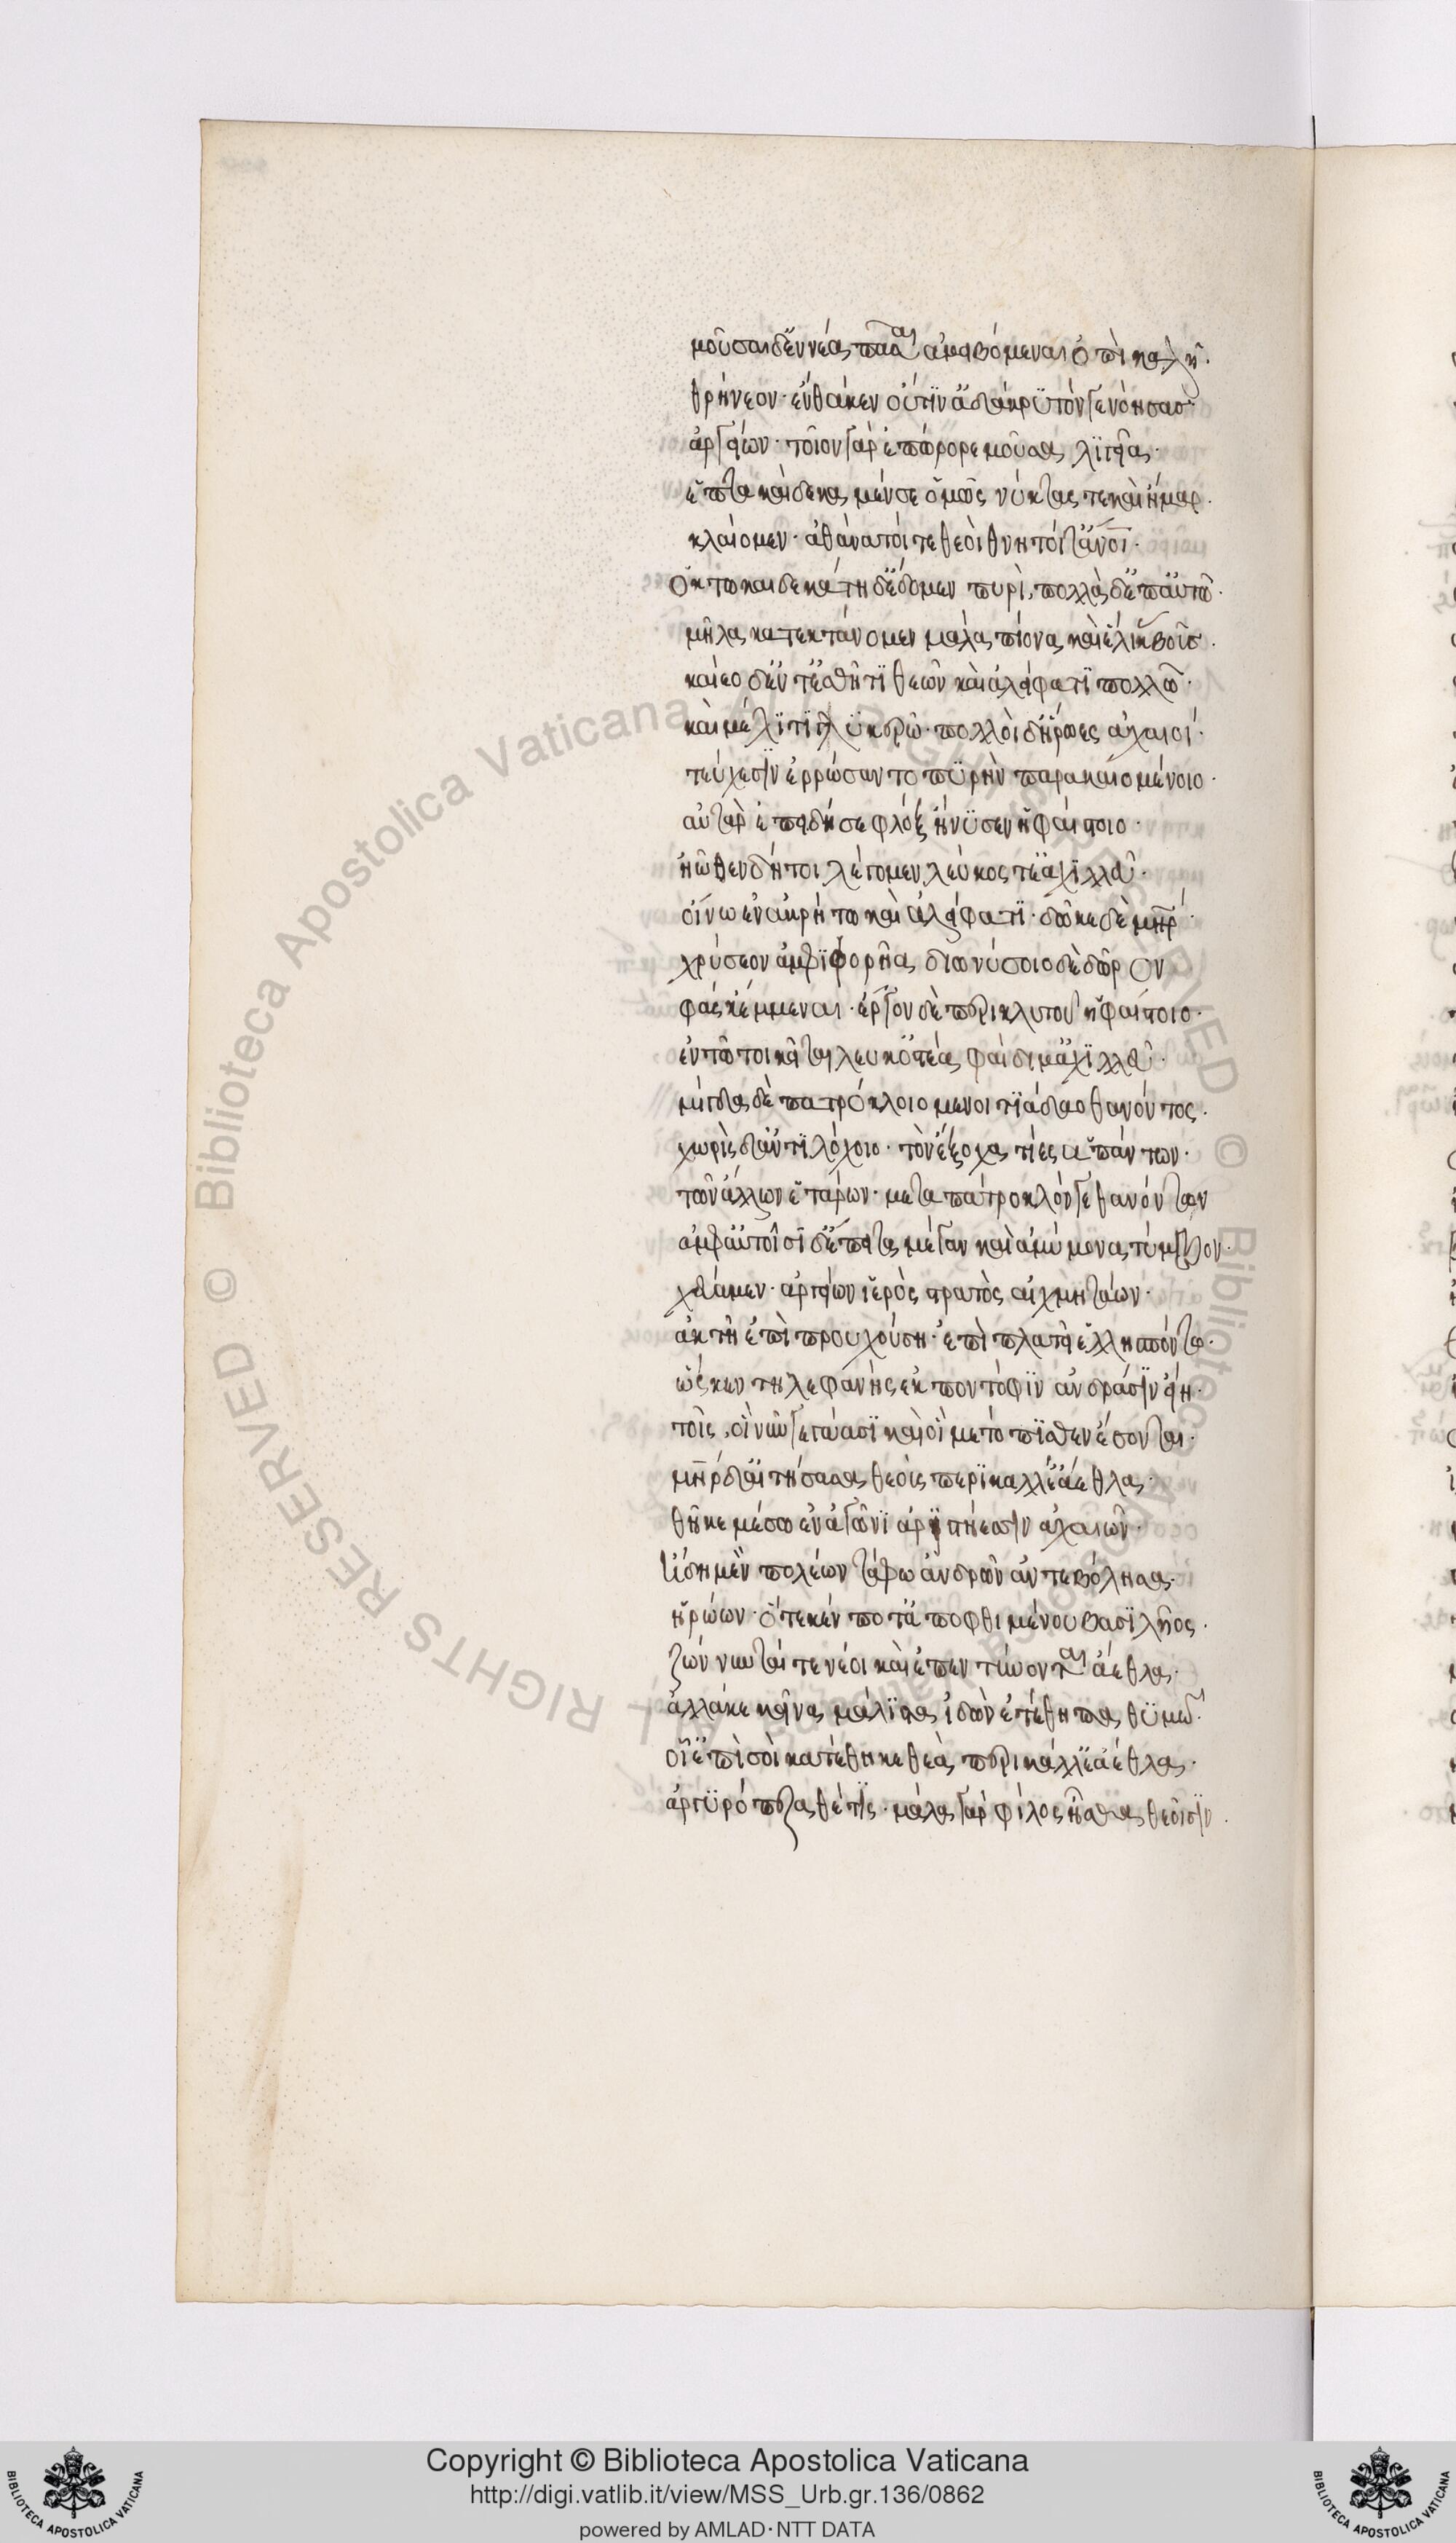 μοῦσαι δ' ἐννέα πᾶσαι ἀμειβόμεναι ὀπὶ καλῇ·
θρήνεον· ἔνθά κεν οὔτιν' ἀδάκρϋτόν γ' ἐνόησας·
ἀργείων· τοῖον γὰρ ἐπώρορε μοῦσα λίγεια·
ἑπτα καὶ δεκα μέν σε ὁμῶς νύκτας τε καὶ ἦμαρ·
κλαίομεν· ἀθάνατοί τε θεοὶ θνητοί τ' ἄνοι·
ὀκτωκαιδεκάτη δ' ἔδομεν πυρὶ, πολλὰ δ' ἐπ' αὐτῶ·
μῆλα κατεκτάνομεν μάλα πίονα καὶ ἕλικας βοῦς·
καίεο δ' ἔν τ' ἐσθῆτϊ θεῶν καὶ ἀλείφατϊ πολλῶ·
καὶ μέλϊτϊ γλϋκερῶ· πολλοὶ δ' ἥρωες ἀχαιοί·
τεύχεσϊν ἐρρώσαντο πϋρὴν πάρα καιομένοιο·
αὐτὰρ ἐπειδή σε φλὸξ ἤνϋσεν ἡφαίστοιο·
ἠῶθεν δή τοι λέγομεν λεύκ' ὀστέ' ἀχϊλλεῦ·
οἴνω ἐν ἀκρήτω καὶ ἀλείφατϊ· δῶκε δὲ μῆρ·
χρύσεον ἀμφϊφορῆα διωνύσοιο δὲ δῶρον
φάσκ' ἔμμεναι· ἔργον δὲ περικλυτοῦ ἡφαίστοιο·
ἐν τῶ τοι κεῖται λεύκ' ὀστέα φαίδιμ' ἀχϊλλεῦ·
μίγδα δὲ πατρόκλοιο μενοιτϊάδαο θανόντος·
χωρὶς δ' ἀντϊλόχοιο· τὸν ἔξοχα τίες ἁπάντων·
τῶν ἄλλων ἑτάρων· μετα πάτροκλόν γε θανόντων
ἀμφ' αὐτοῖσι δ' ἔπειτα μέγαν καὶ ἀμύμονα τύμβον·
χεύαμεν· ἀργείων ἱερὸς στρατὸς αἰχμητάων·
ἀκτῆ ἐπὶ προυχούση· ἐπὶ πλατεῖ ἑλλησπόντω·
ὥς κεν τηλεφανὴς ἐκ ποντόφϊν ἀνδράσϊν εἴη·
τοῖς, οἳ νῦν γεγάασϊ καὶ οἳ μετόπϊσθεν ἔσονται·
μῆρ δ' αἰτήσασα θεοὺς περϊκαλλέ' ἄεθλα·
θῆκε μέσω ἐν ἀγῶνϊ ἀρϊστήεσσϊν ἀχαιῶν·
ἤδη μὲν πολέων τάφω ἀνδρῶν ἀντεβόλησα·
ἡρώων· ὅτε κέν ποτ' ἀποφθιμένου βασϊλῆος·
ζώννυνταί τε νέοι καὶ ἐπεντύνονται ἄεθλα·
ἀλλά κε κεῖνα μάλϊστα ἰδὼν ἐτέθηπας θϋμῶ·
οἷ' ἐπὶ σοὶ κατέθηκε θεὰ περικάλλε' ἄεθλα·
ἀργϋρόπεζα θέτϊς· μάλα γὰρ φίλος ἦσθα θεοῖσϊν·
Copyright © Biblioteca Apostolica Vaticana
http://digi.vatlib.it/view/MSS_Urb.gr.136/0862
powered by AMLAD·NTT DATA